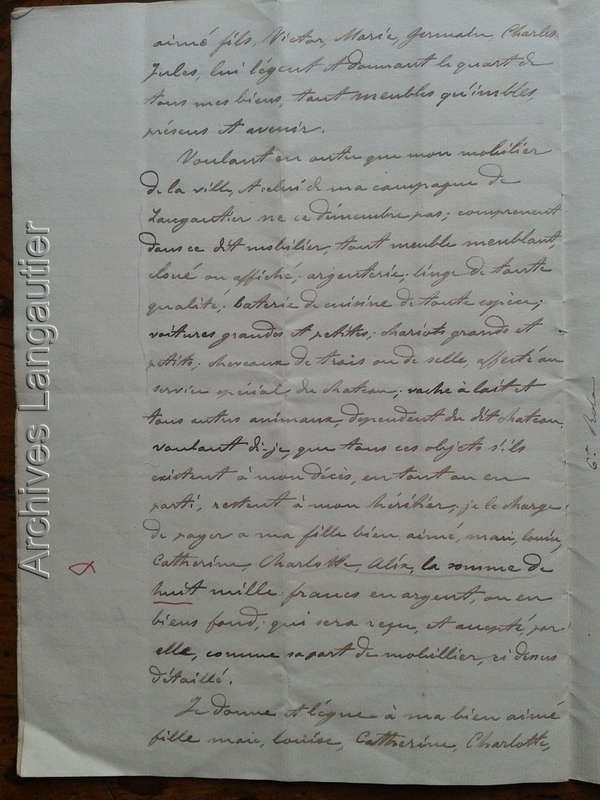 aimé fils, Victor, Marie, Germain, Charles
Jules, lui légant et donnant le quart de
tous mes biens, tant meubles qu'imbles,
présens et avenir.
Voulant en outre que mon mobilier
de la ville, et celui de ma campagne de
Langautier ne ce démembre pas; comprenent
dans ce dit mobilier, tout meuble meublant,
cloué ou affiché; argenterie, linge de toute
qualité; baterie de cuisine de toute espèce;
voitures grandes et petites; chariots grands et
petits; chevaux de trais ou de selle, affecté au
service spécial du chateau; vache à lait et
tous autres animaux dependent du dit chateau,
voulant di-je, que tous ces objets s'ils
existent à mon décès, en tout ou en
parti, restent à mon héritier; je le charge
de payer a ma fille bien aimé, mari, louise,
Catherine, Charlotte, Alix, la somme de
huit mille francs en argent, ou en
biens fond; qui sera reçu, et accepté, par
elle, comme sa part de mobillier, ci dessus
détaillé.
Je donne et lègue à ma bien aimé
fille mari, louise, Catherine, Charlotte,
Archives Langautier